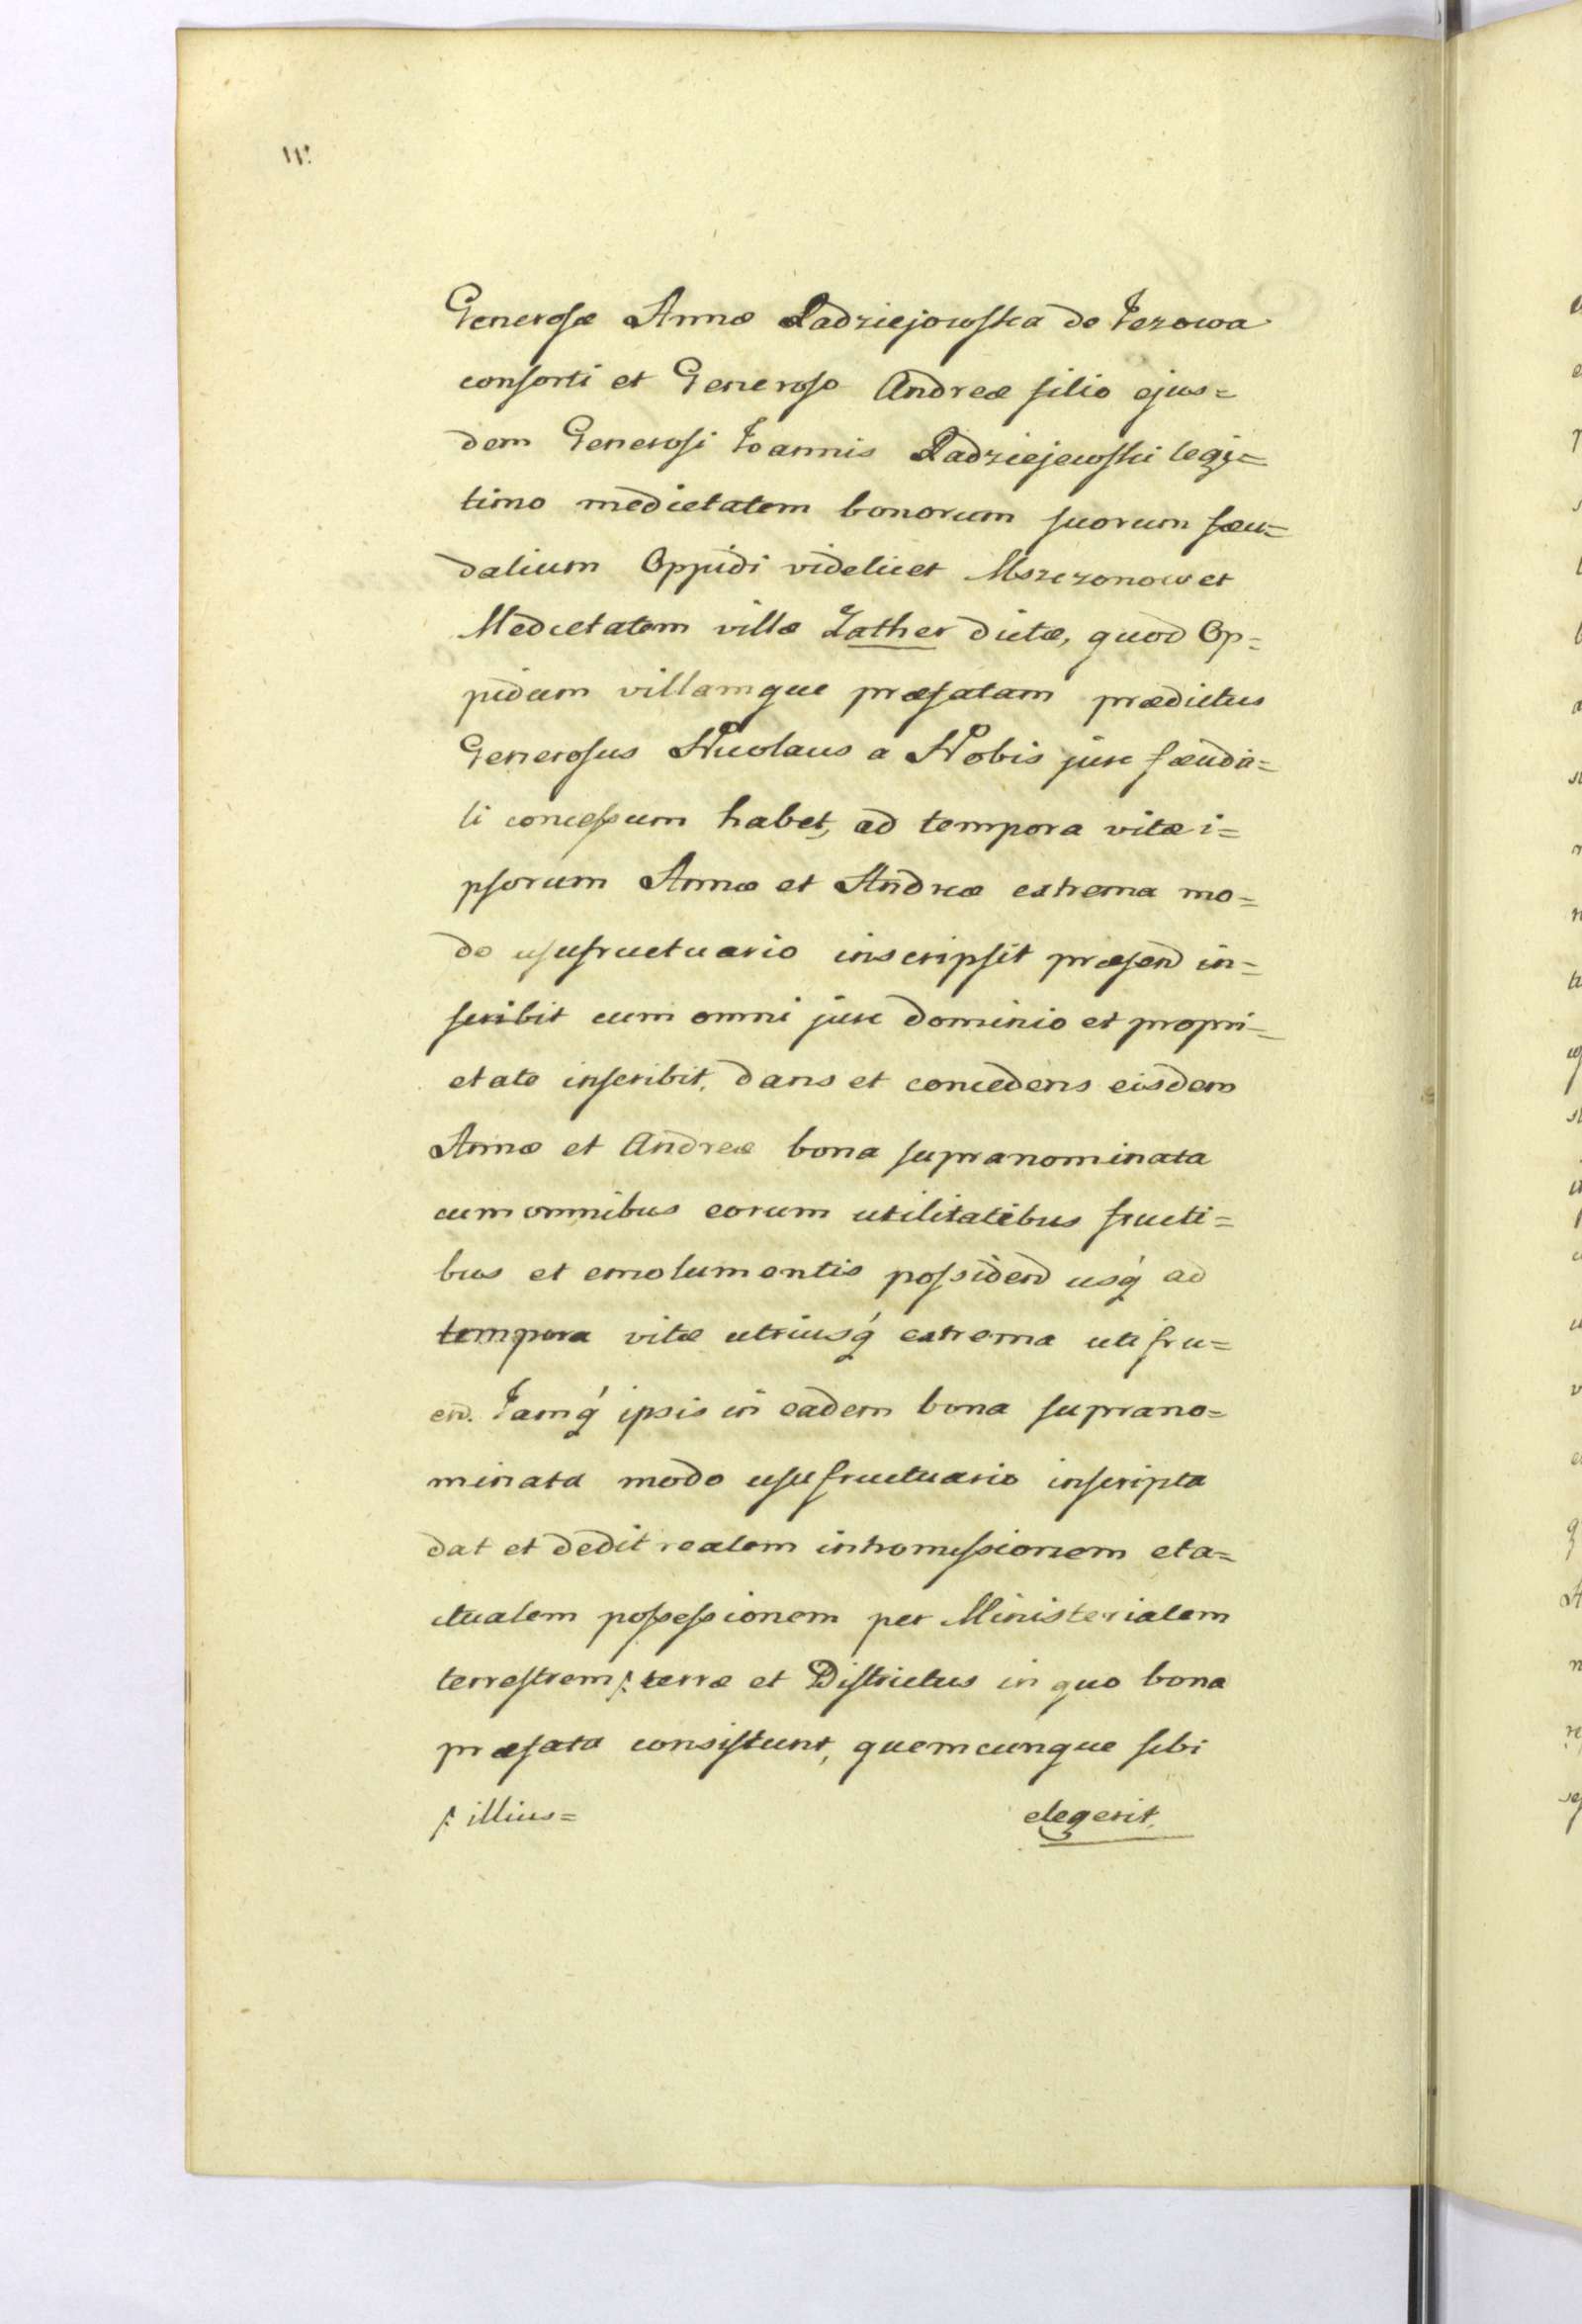 Generosæ Annæ Radziejowska de Jezowa
consorti et Generoso Andreæ filio ejus=
dem Generosi Joannis Radziejewski legi=
timo medietatem bonorum suorum fæu=
dalium Oppidi videlicet Mszczonow et
Medietatem villæ Zather dictæ, quod Op=
pidum villamque præfatam prædictus
Generosus Nicolaus a Nobis jure fæuda=
li concessum habet, ad tempora vitæ i=
psorum Annæ et Andreæ extrema mo=
do usufructuario inscripsit præsend in=
scribit cum omni jure dominio et propri=
etate inscribit. dans et concedens eisdem
Annæ et Andreæ bona supranominata
cum omnibus eorum utilitatibus fructi=
bus et emolumentis possidend usq́ ad
tempora vitæ utriusq́ extrema uti fru=
end. Jamq́ ipsis in eadem bona suprano=
minata modo usufructuario inscripta
dat et dedit realem intromissionem et a=
ctualem possessionem per Ministerialem
terrestrem /: terræ et Districtus in quo bona
præfata consistunt, quemcunque sibi
/: illius= elegerit.